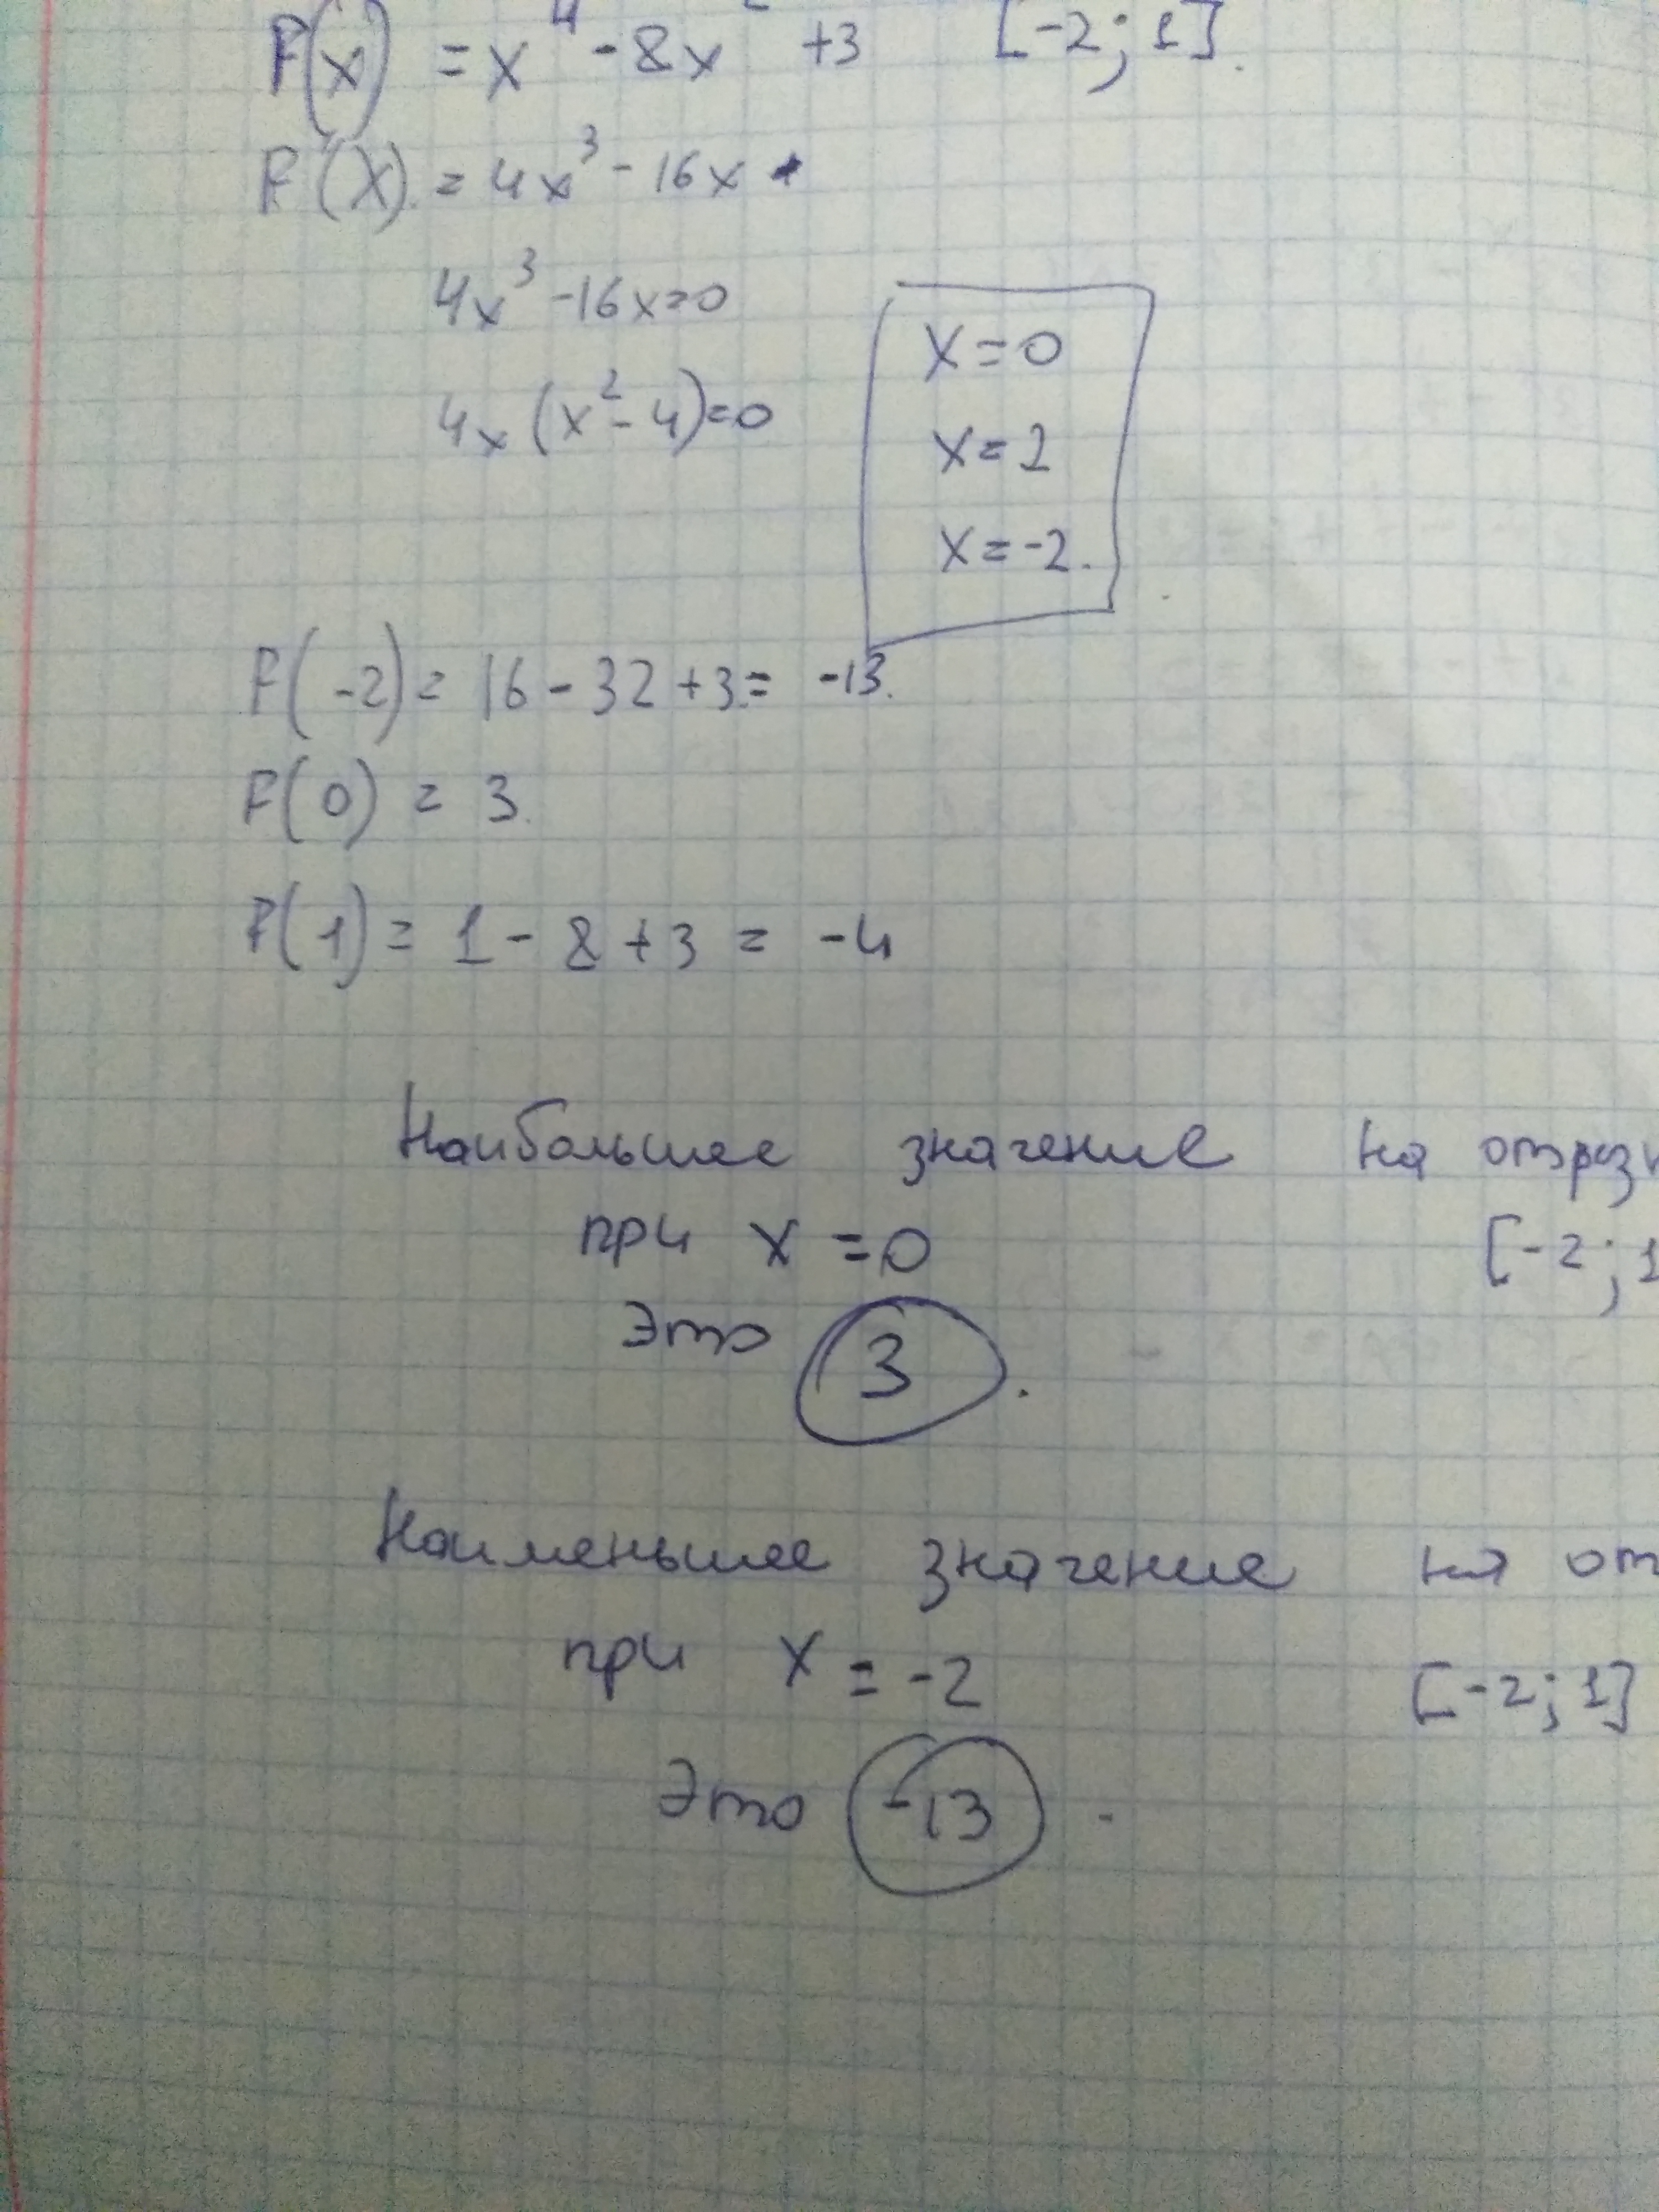 F(x) = x⁴ - 8x² + 3 [-2; 1].
F'(x) = 4x³ - 16x
4x³ - 16x = 0
4x(x² - 4) = 0
x = 0
x = 2
x = -2.
F(-2) = 16 - 32 + 3 = -13.
F(0) = 3.
F(1) = 1 - 8 + 3 = -4
Наибольшее значение на отрезк
при x = 0 [-2; 1
Это 3.
Наименьшее значение на от
при x = -2 [-2; 1]
Это -13.